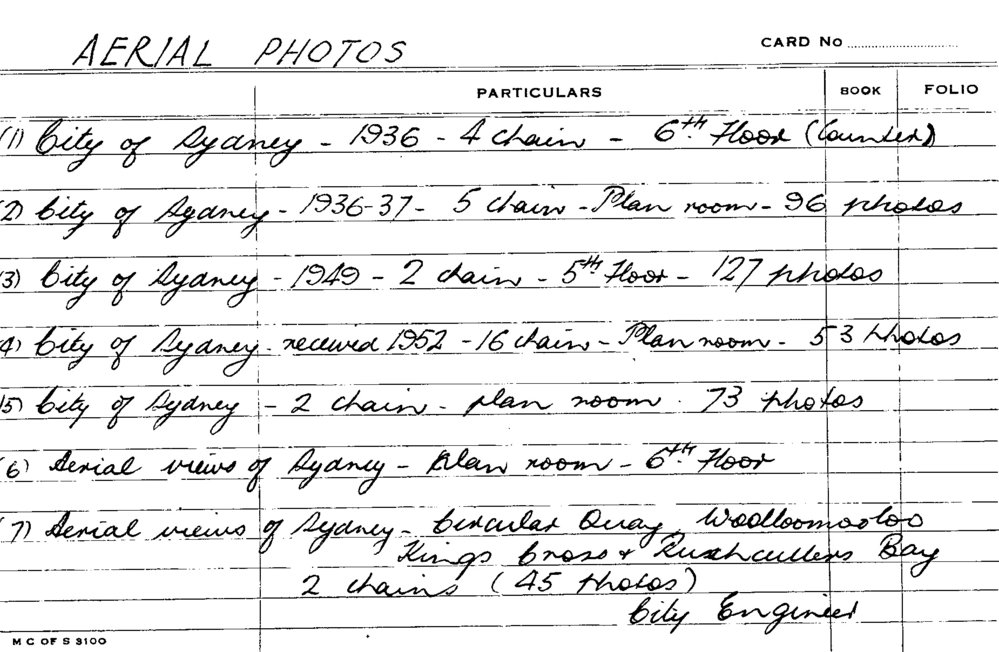 AERIAL PHOTOS CARD No
PARTICULARS BOOK FOLIO
(1) City of Sydney - 1936 - 4 chain - 6th Floor (Counter)
(2) City of Sydney - 1936-37 - 5 chain - Plan room - 96 photos
(3) City of Sydney - 1949 - 2 chain - 5th Floor - 127 photos
(4) City of Sydney - received 1952 - 16 chain - Plan room - 53 photos
(5) City of Sydney - 2 chain - plan room - 73 photos
(6) Aerial views of Sydney - Plan room - 6th Floor
(7) Aerial views of Sydney - Circular Quay, Woolloomooloo
Kings Cross & Rushcutters Bay
2 chains (45 photos)
City Engineer
M C OF S 3100